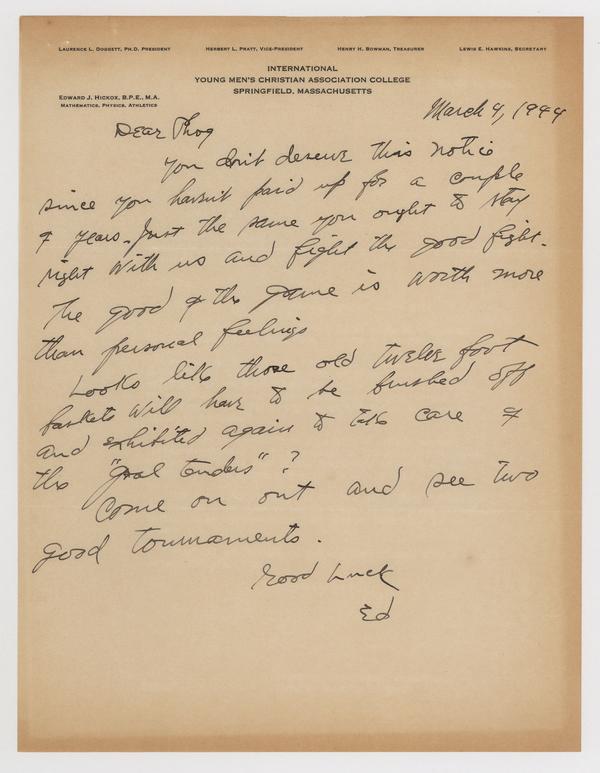 LAURENCE L. DOGGETT, PH.D. PRESIDENT HERBERT L. PRATT, VICE-PRESIDENT HENRY H. BOWMAN, TREASURER LEWIS E. HAWKINS, SECRETARY
INTERNATIONAL
YOUNG MEN'S CHRISTIAN ASSOCIATION COLLEGE
SPRINGFIELD, MASSACHUSETTS
EDWARD J. HICKOX, B.P.E., M.A.
MATHEMATICS, PHYSICS, ATHLETICS
March 4, 1944
Dear Phog
You don't deserve this notice
since you haven't paid up for a couple
of years. Just the same you ought to stay
right with us and fight the good fight.
The good of the game is worth more
than personal feelings
Looks like those old twelve foot
baskets will have to be brushed off
and exhibited again to take care of
the "goal tenders"?
Come on out and see two
good tournaments.
Good Luck
Ed